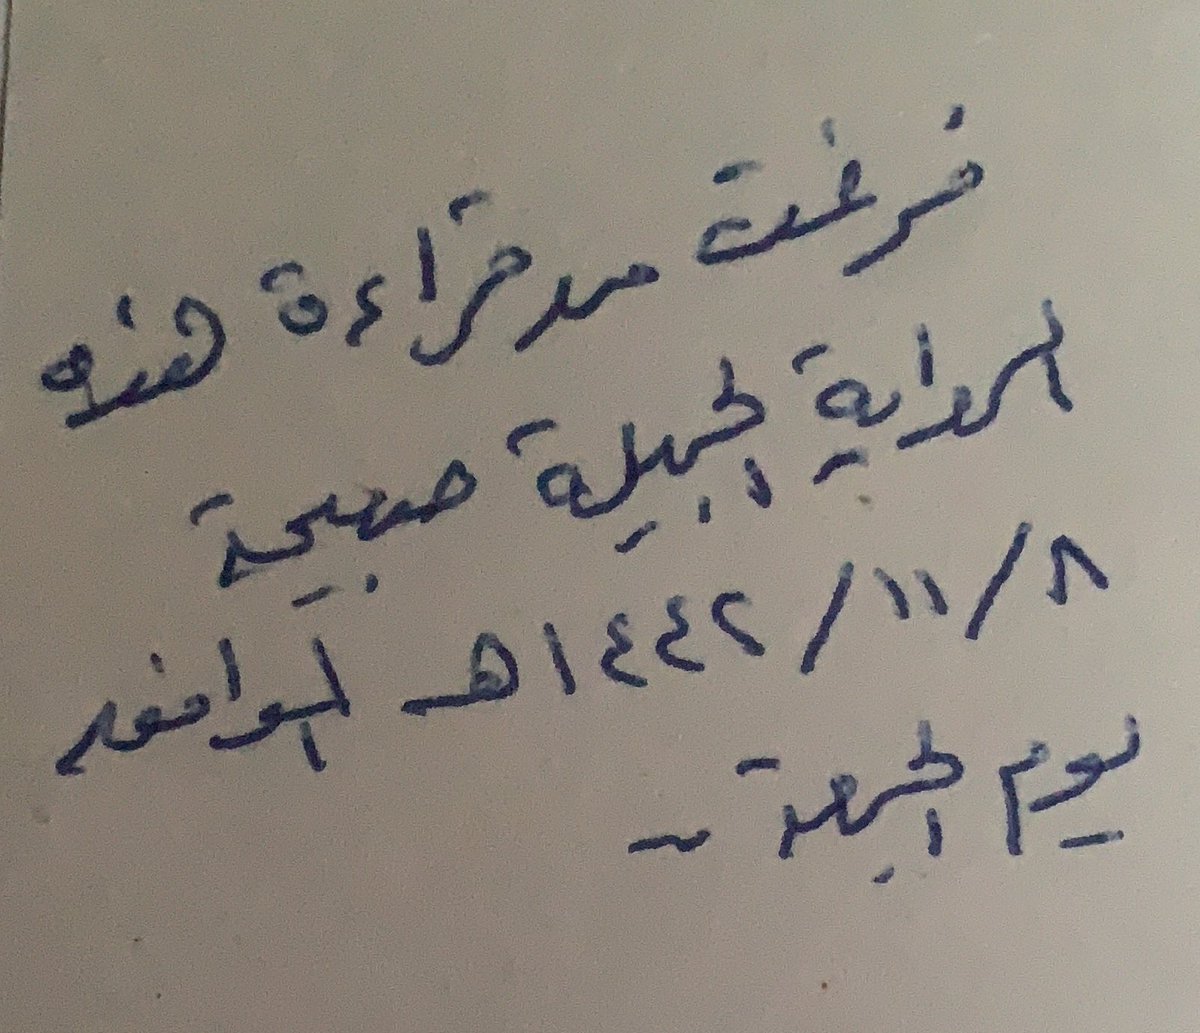 فرغت من قراءة هذه
الرواية الجميلة صبيحة
٨/ ١١/ ١٤٤٢هـ الموافق
يوم الجمعة -